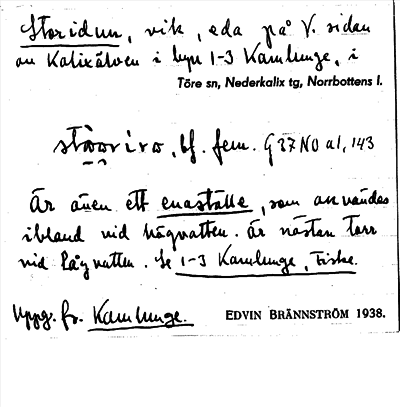 Storidun, vik, eda på V. sidan
av Kalixälven i byn 1-3 Kamlunge, i
Töre sn, Nederkalix tg, Norrbottens l.
bf. fem. G 37 NO a1, 143
Är även ett enaställe, som användes
ibland vid högvatten. är nästan torr
vid lågvatten. Se 1-3 Kamlunge, Fiske.
Uppg. fr. Kamlunge. EDVIN BRÄNNSTRÖM 1938.